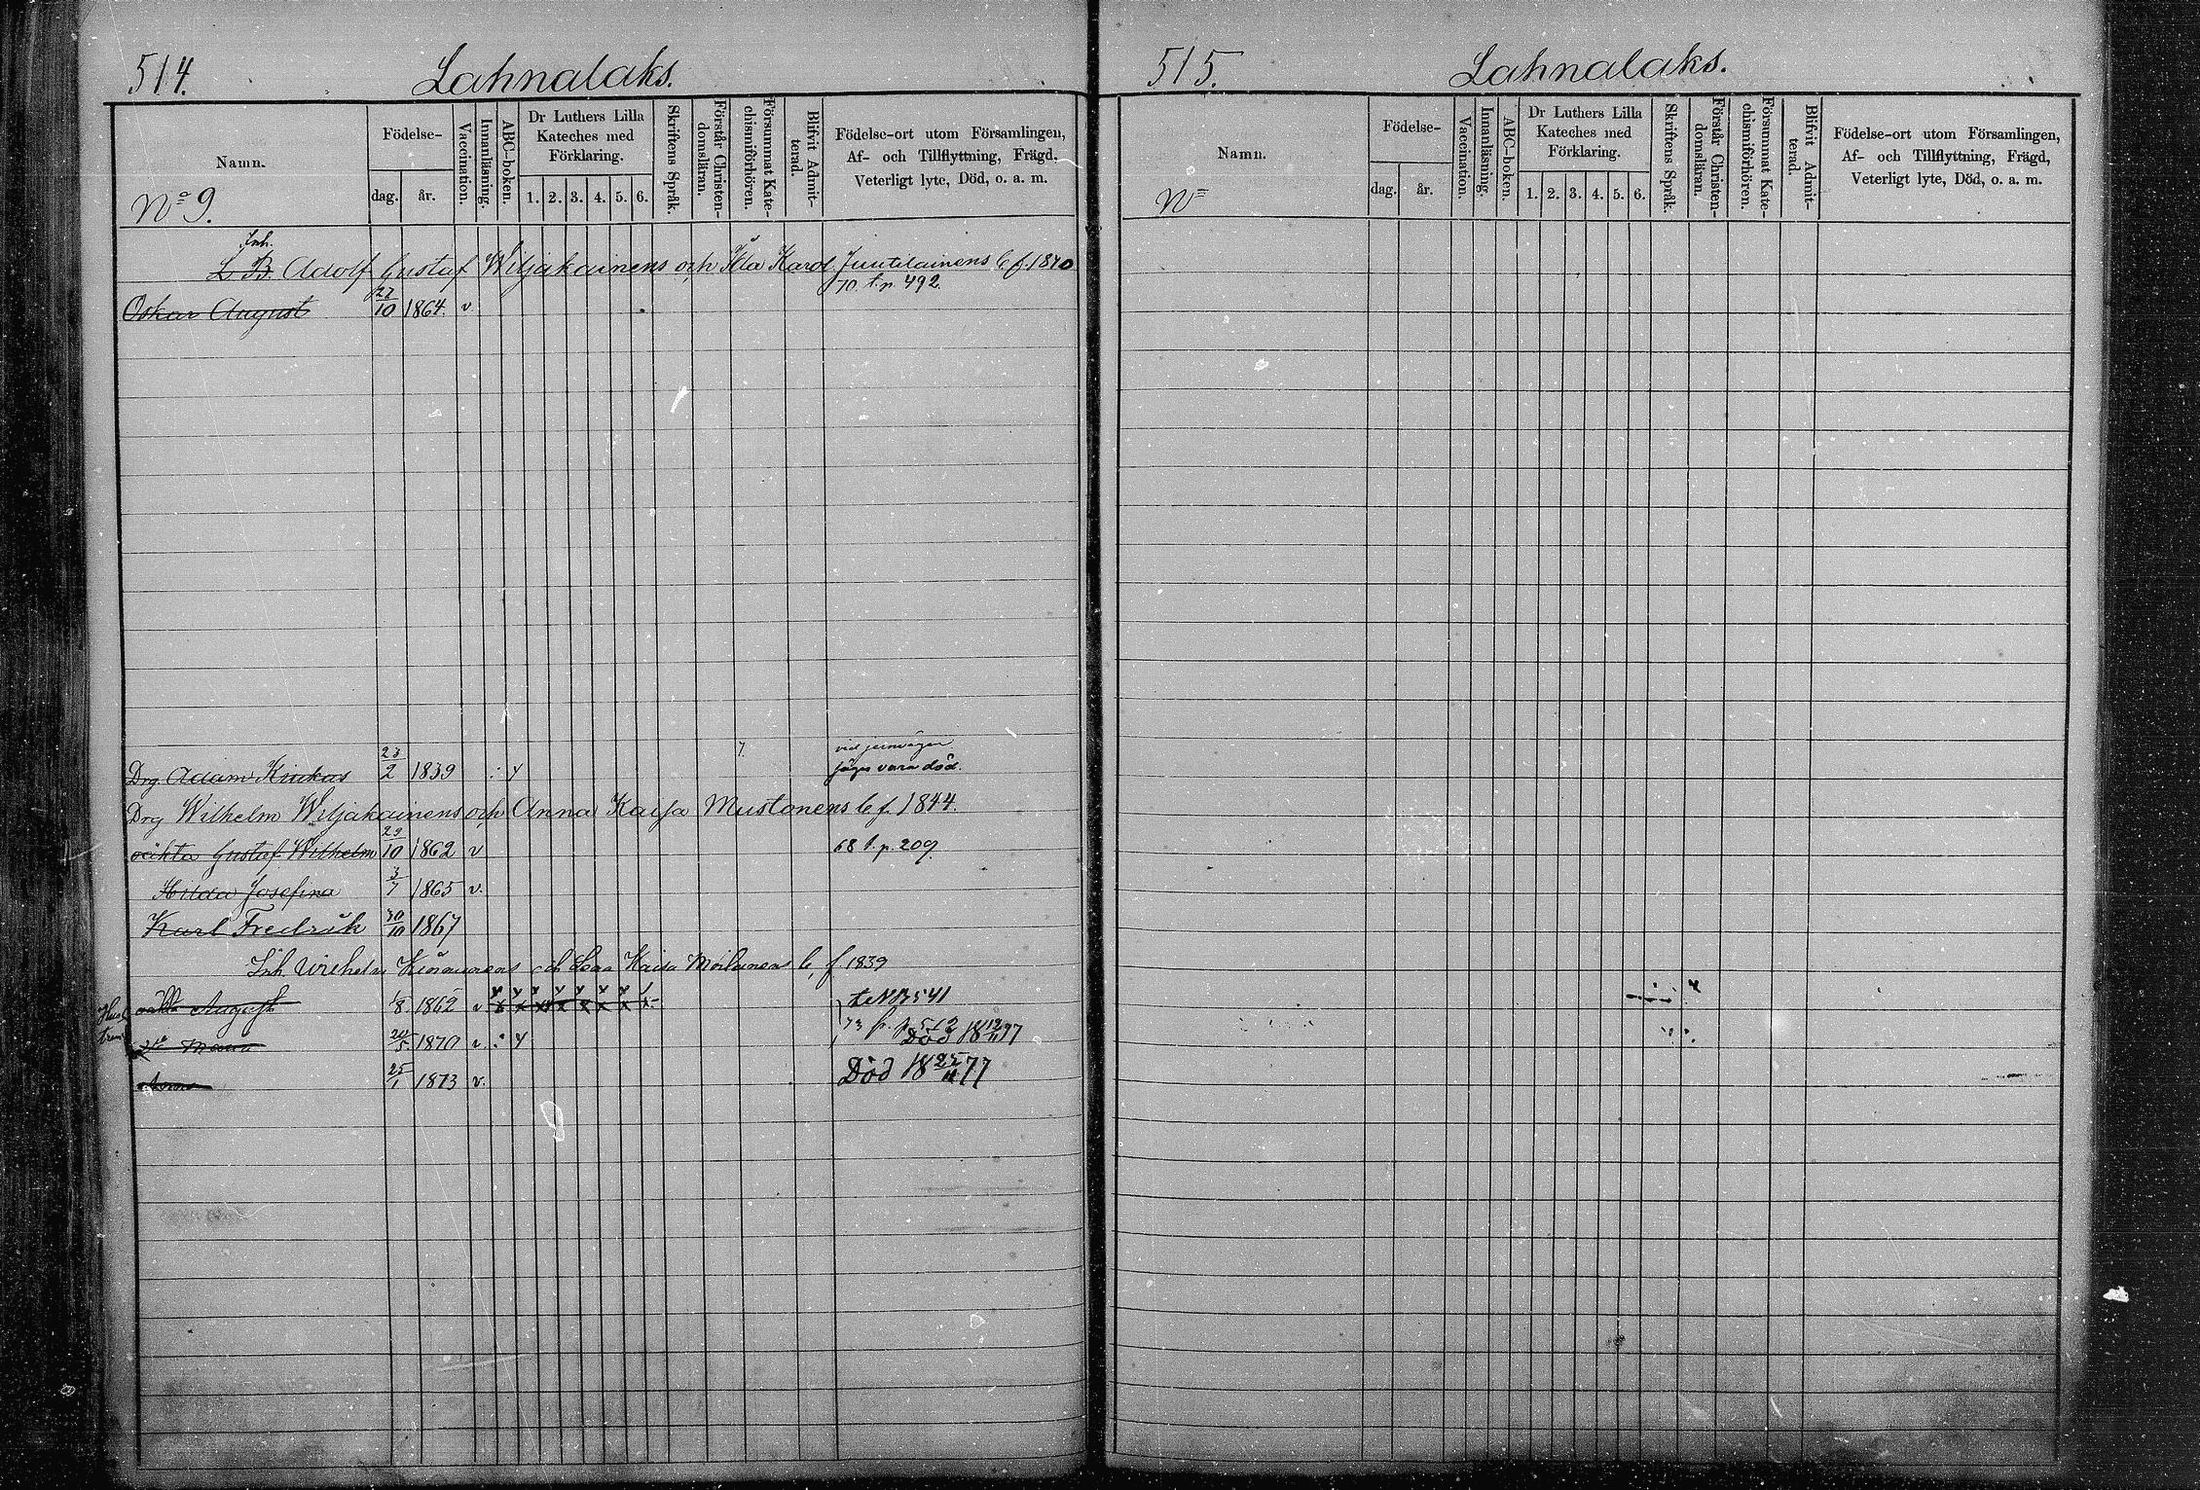 514. Lahnalaks.
Namn.
Födelse-
dag. år.
Vaccination.
Innanläsning.
ABC-boken.
Dr Luthers Lilla
Kateches med
Förklaring.
1. 2. 3. 4. 5. 6.
Skriftens Språk.
Förstår Christen-
domsläran.
Försummat Kate-
chismiförhören.
Blifvit Admit-
terad.
Födelse-ort utom Församlingen,
Af- och Tillflyttning, Frägd,
Veterligt lyte, Död, o. a. m.
No 9.
Inh.
L. B. Adolf Gustaf Wiljakainens och Karol. Juutilainens b f. 1840
70 t. p. 492.
Oskar August 27/10 1864. v
7. vid jernvägen
Drg Adam Kiukas 23/2 1839 säges vara död.
Drg Wilhelm Wiljakainens och Anna Kaisa Mustonens b f. 1844.
oäkta Gustaf Wilhelm 29/10 1862 v 68 t. p. 209.
Hilda Josefina 3/7 1865 v.
Karl Fredrik 30/10 1867
Inh. Wilhelm och Lena Kaisa Moilanens b. f 1839
oäkta August 1/8 1862 v t NB 541
73 fr. p. 512
Maria 1870 v. Död 18 77
Anna 25/1 1873 v. Död 18 25/11 77
515. Lahnalaks.
Namn.
Födelse-
dag. år.
Vaccination.
Innanläsning.
ABC-boken.
Dr Luthers Lilla
Kateches med
Förklaring.
1. 2. 3. 4. 5. 6.
Skriftens Språk.
Förstår Christen-
domsläran.
Försummat Kate-
chismiförhören.
Blifvit Admit-
terad.
Födelse-ort utom Församlingen,
Af- och Tillflyttning, Frägd,
Veterligt lyte, Död, o. a. m.
No